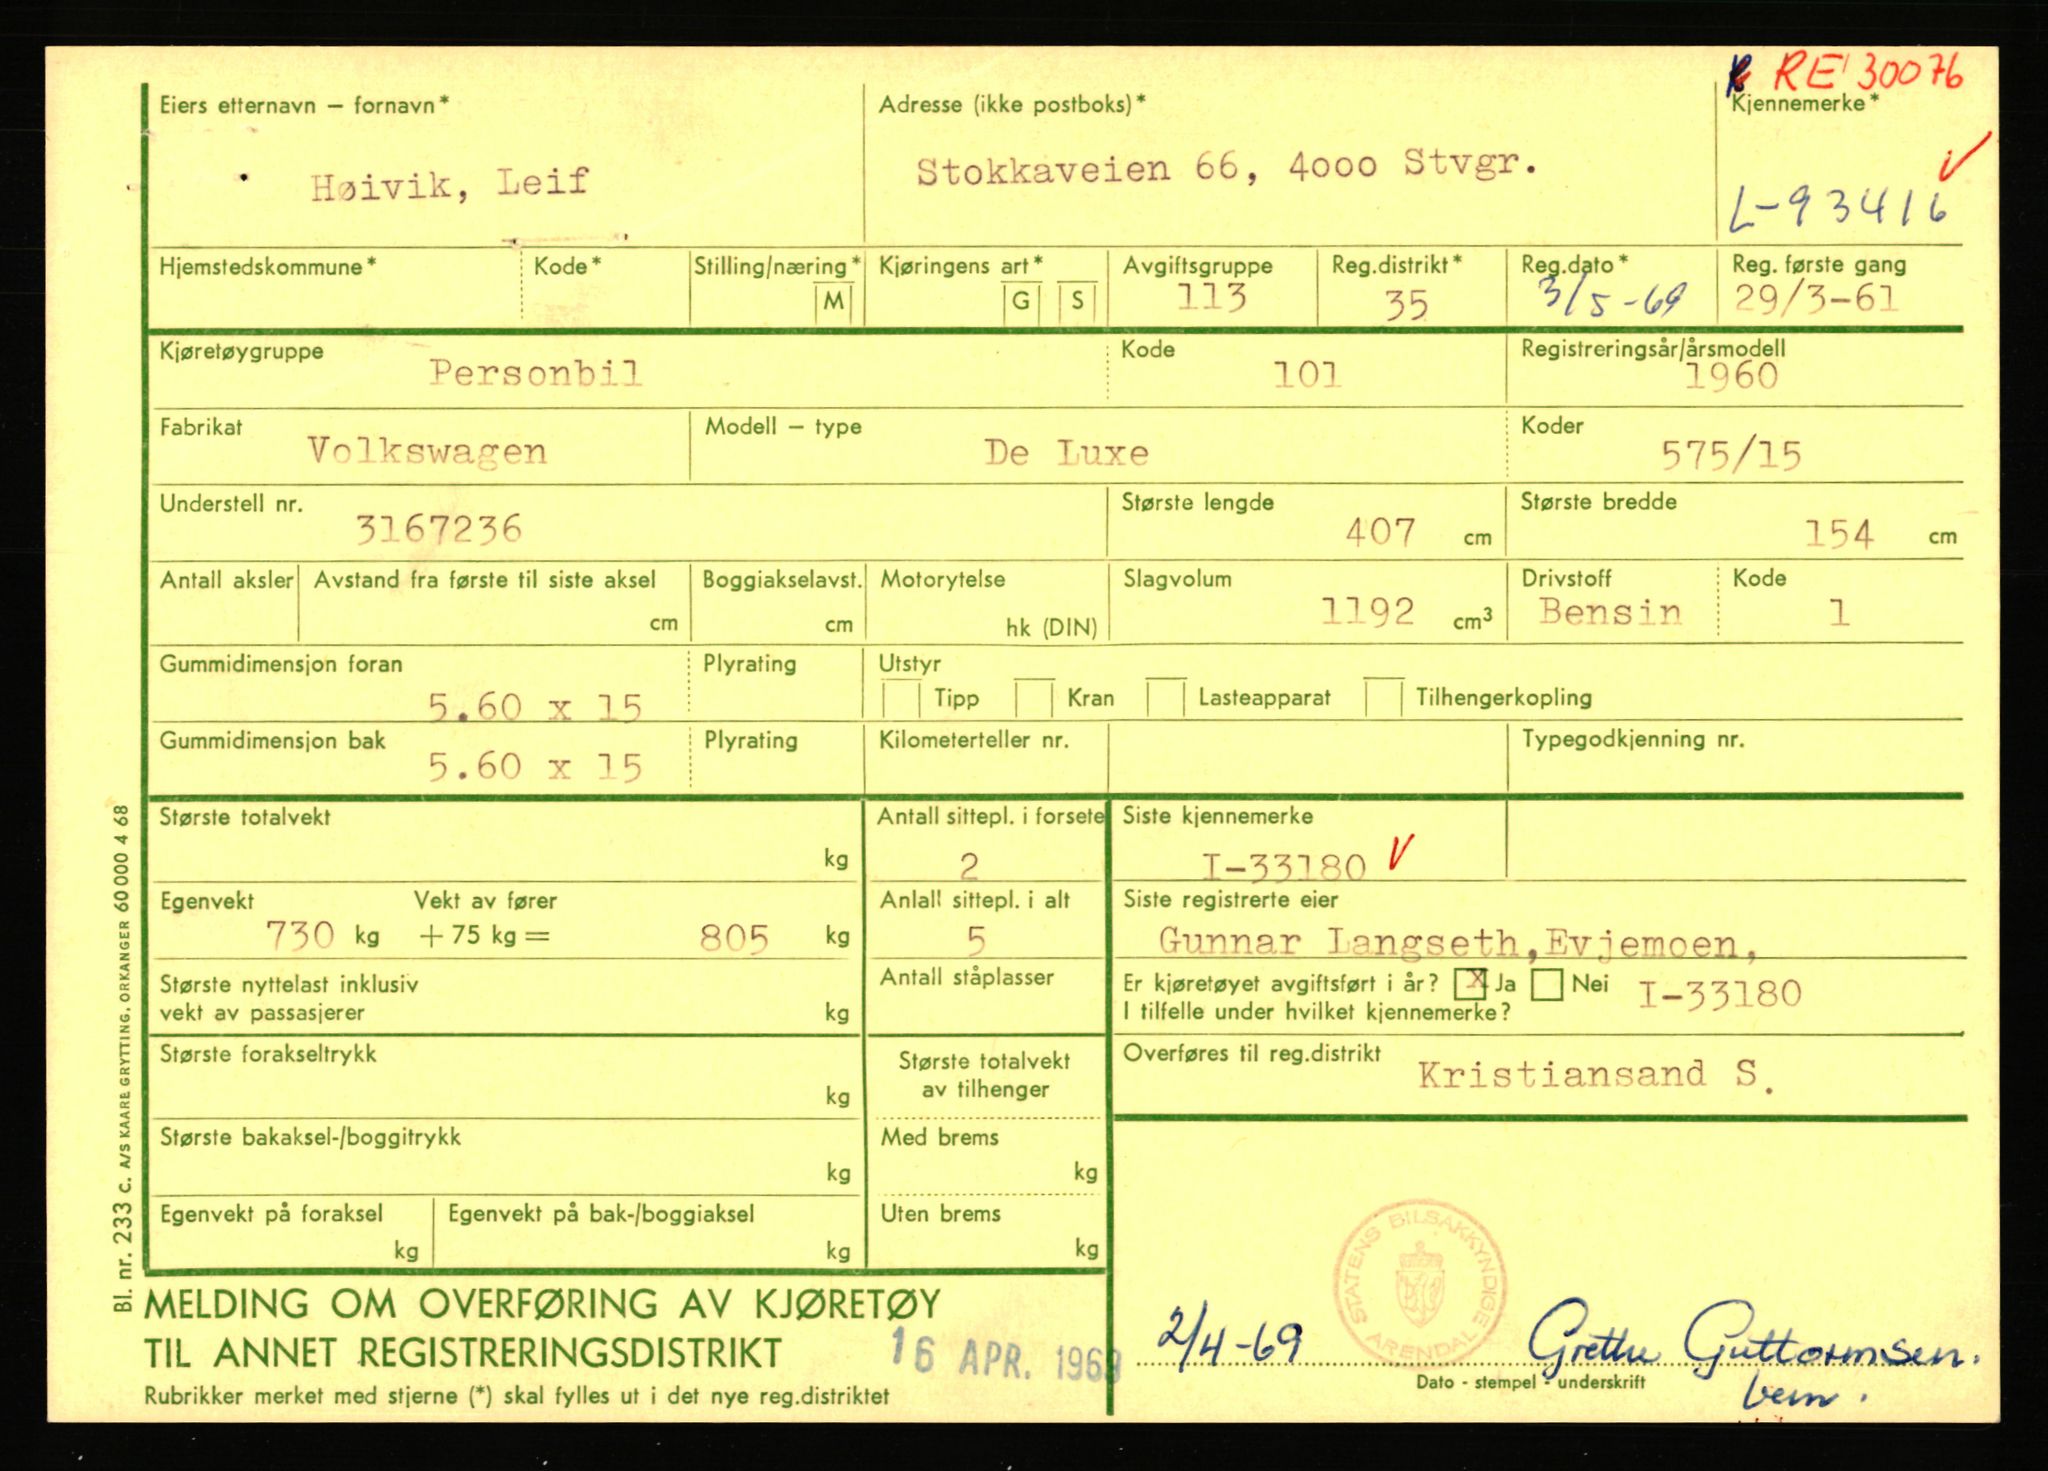 RE 30076
Eiers etternavn – fornavn*
Adresse (ikke postboks)*
Kjennemerke*
Høivik, Leif
Stokkaveien 66, 4000 Stvgr.
L-93416
Hjemstedskommune*
Kode*
Stilling/næring*
M
Kjøringens art*
G
S
Avgiftsgruppe
113
Reg.distrikt*
35
Reg.dato*
3/5-69
Reg. første gang
29/3-61
Kjøretøygruppe
Personbil
Kode
101
Registreringsår/årsmodell
1960
Fabrikat
Volkswagen
Modell – type
De Luxe
Koder
575/15
Understell nr.
3167236
Største lengde
407 cm
Største bredde
154 cm
Antall aksler
Avstand fra første til siste aksel
cm
Boggiakselavst.
cm
Motorytelse
hk (DIN)
Slagvolum
1192 cm³
Drivstoff
Bensin
Kode
1
Gummidimensjon foran
5.60 x 15
Plyrating
Utstyr
Tipp
Kran
Lasteapparat
Tilhengerkopling
Gummidimensjon bak
5.60 x 15
Plyrating
Kilometerteller nr.
Typegodkjenning nr.
Største totalvekt
kg
Antall sittepl. i forsete
2
Siste kjennemerke
I-33180
Egenvekt
730 kg
Vekt av fører
+ 75 kg =
805 kg
Anlall sittepl. i alt
5
Siste registrerte eier
Gunnar Langseth, Evjemoen,
Største nyttelast inklusiv
vekt av passasjerer
kg
Antall ståplasser
Er kjøretøyet avgiftsført i år? X Ja Nei
I tilfelle under hvilket kjennemerke?
I-33180
Største forakseltrykk
kg
Største totalvekt
av tilhenger
Overføres til reg.distrikt
Kristiansand S.
Største bakaksel-/boggitrykk
kg
Med brems
kg
Egenvekt på foraksel
kg
Egenvekt på bak-/boggiaksel
kg
Uten brems
kg
STATENS BILSAKKYNDIGE
ARENDAL
MELDING OM OVERFØRING AV KJØRETØY
TIL ANNET REGISTRERINGSDISTRIKT
16 APR. 1969
2/4-69
Grethe Guttormsen.
Dato - stempel - underskrift
Rubrikker merket med stjerne (*) skal fylles ut i det nye reg.distriktet
Bl. nr. 233 C. A/S KAARE GRYTTING, ORKANGER 60 000 4 68